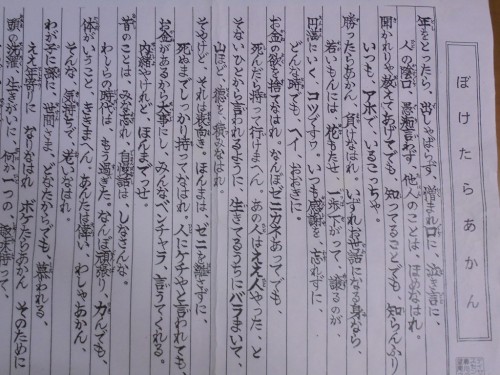 ぼけたらあかん
年をとったら、出しゃばらず、憎まれ口に、泣き言に、
人の陰口、愚痴言わず、他人のことは、ほめなはれ。
聞かれりゃ教えてあげてでも、知ってることでも、知らんふり
いつも、アホで、いるこっちゃ。
勝ったらあかん、負けなはれ。いづれお世話になる身なら、
若いもんには花もたせ 一歩下がって、譲るのが
円満にいく、コツですわ。いつも感謝を、忘れずに、
どんな時でも、ヘイ、おおきに。
お金の欲を捨てなはれ。なんぼゼニカネあってても、
死んだら持って行けまへん。あの人はええ人やった、と
そないひとから言われるように、生きてるうちにバラまいて、
山ほど、徳を、積みなはれ。
そやけど、それは表向き。ほんまは、ゼニを離さずに、
死ぬまでしっかり持ってなはれ。人にケチやと言われても、
お金があるから大事にし、みんな、ベンチャラ言うてくれる。
内緒やけれど、ほんまでっせ。
昔のことは、みな忘れ、自慢話は、しなさんな。
わしらの時代は、もう過ぎた。なんぼ頑張り 力んでも、
体がいうこと、ききまへん。あんたは偉い、わしゃあかん、
そんな気持ちで、おりなはれ
わが子に孫に、世間さま、どなたからでも、慕われる、
ええ年寄りに、なりなはれ ボケたらあかん そのために
頭の洗濯、生きがいに、何か一つの、趣味持って、